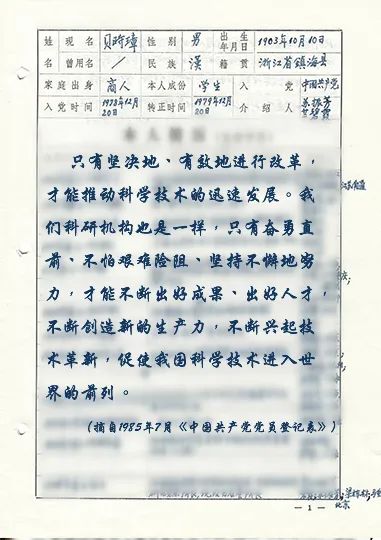 姓 现名 贝时璋 性别 男 出生年月日 1903年10月10日
名 曾用名 / 民族 漢 籍贯 浙江省镇海县
家庭出身 商人 本人成份 学生 入党 中國共产党
入党时间 1978年12月20日 转正时间 1979年12月20日 介绍人
只有坚决地、有效地进行改革，
才能推动科学技术的迅速发展。我
们科研机构也是一样，只有奋勇直
前、不怕艰难险阻、坚持不懈地努
力，才能不断出好成果、出好人才，
不断创造新的生产力，不断兴起技
术革新，促使我国科学技术进入世
界的前列。
（摘自1985年7月《中国共产党党员登记表》）
北京
— 1 —